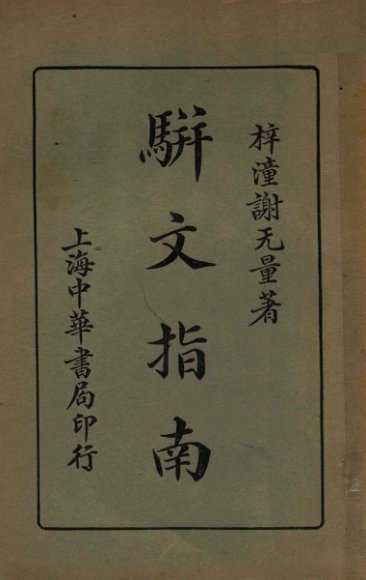 梓潼謝无量著
駢文指南
上海中華書局印行